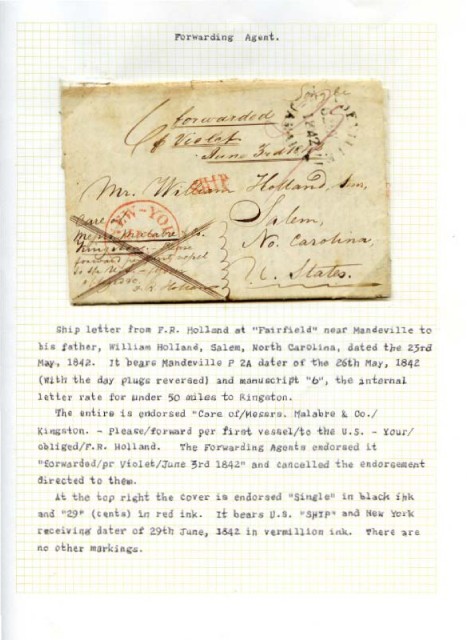 Forwarding Agent.
Single
forwarded
6 pr Violet
June 3rd 1842
SHIP
Mr. William Holland, Senr,
Salem,
No. Carolina,
U. States.
NEW-YORK
Care of
Messrs Malabre & Co.
Kingston. Please
forward per first vessel
to the U.S.
F.R. Holland
Ship letter from F.R. Holland at "Fairfield" near Mandeville to
his father, William Holland, Salem, North Carolina, dated the 23rd
May, 1842. It bears Mandeville P 2A dater of the 26th May, 1842
(with the day plugs reversed) and manuscript "6", the internal
letter rate for under 50 miles to Kingston.
The entire is endorsed "Care of/Messrs. Malabre & Co./
Kingston. - Please/forward per first vessel/to the U.S. - Your/
obliged/F.R. Holland. The Forwarding Agents endorsed it
"forwarded/pr Violet/June 3rd 1842" and cancelled the endorsement
directed to them.
At the top right the cover is endorsed "Single" in black ink
and "29" (cents) in red ink. It bears U.S. "SHIP" and New York
receiving dater of 29th June, 1842 in vermillion ink. There are
no other markings.